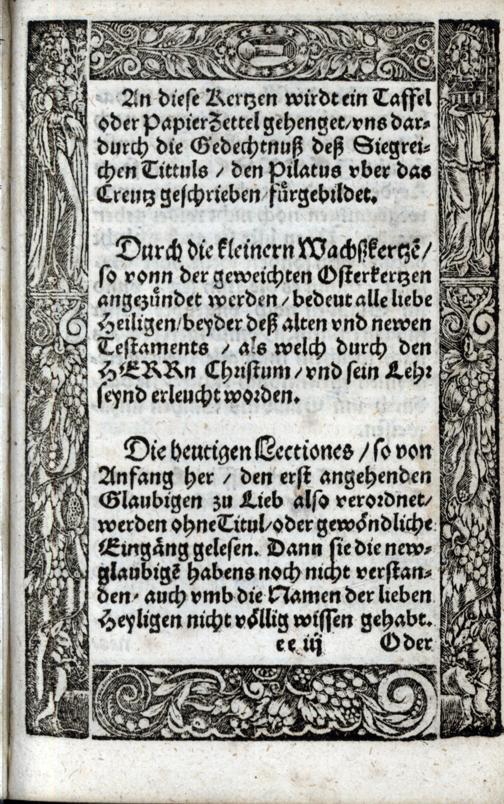 An diese Kertzen wirdt ein Taffel
oder Papier Zettel gehenget/ vns dar⸗
durch die Gedechtnuß deß Siegrei⸗
chen Tittuls / den Pilatus vber das
Creutz geschrieben/ fürgebildet.
Durch die kleinern Wachßkertzē/
so vonn der geweichten Osterkertzen
angezündet werden / bedeut alle liebe
Heiligen/ beyder deß alten vnd newen
Testaments / als welch durch den
HERRn Christum / vnd sein Lehr
seynd erleucht worden.
Die heutigen Lectiones / so von
Anfang her / den erst angehenden
Glaubigen zu Lieb also verordnet/
werden ohne Titul/ oder gewöndliche
Eingäng gelesen. Dann sie die new⸗
glaubigē habens noch nicht verstan⸗
den/ auch vmb die Namen der lieben
Heyligen nicht völlig wissen gehabt.
ee iij Oder